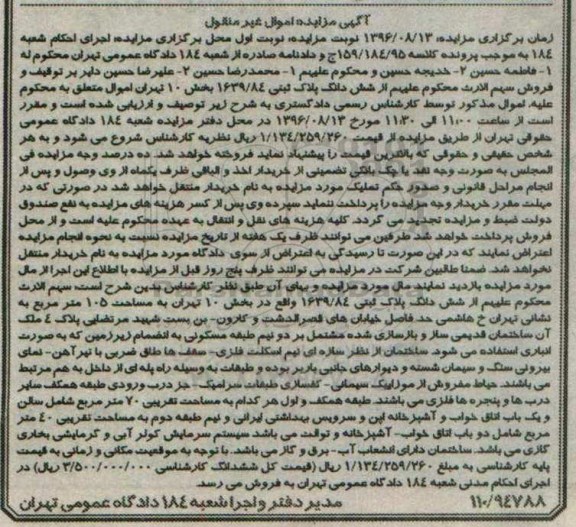 آگهی مزایده اموال غیر منقول
زمان برگزاری مزایده: ۱۳۹۶/۰۸/۱۳ نوبت مزایده: نوبت اول محل برگزاری مزایده: اجرای احکام شعبه
۱۸۴ به موجب پرونده کلاسه ۱۵۹/۱۸۴/۹۵ج و دادنامه صادره از شعبه ۱۸۴ دادگاه عمومی تهران محکوم له
۱- فاطمه حسین ۲- خدیجه حسین و محکوم علیهم ۱- محمدرضا حسین ۲- علیرضا حسین دایر بر توقیف و
فروش سهم الارث محکوم علیهم از شش دانگ پلاک ثبتی ۱۶۳۹/۸۴ بخش ۱۰ تهران اموال متعلق به محکوم
علیه، اموال مذکور توسط کارشناس رسمی دادگستری به شرح زیر توصیف و ارزیابی شده است و مقرر
است از ساعت ۱۱:۰۰ الی ۱۱:۳۰ مورخ ۱۳۹۶/۰۸/۱۳ در محل دفتر مزایده شعبه ۱۸۴ دادگاه عمومی
حقوقی تهران از طریق مزایده از قیمت ۱/۱۳۴/۲۵۹/۲۶۰ ریال نظریه کارشناس شروع می شود و به هر
شخص حقیقی و حقوقی که بالاترین قیمت را پیشنهاد نماید فروخته خواهد شد. ده درصد وجه مزایده فی
المجلس به صورت وجه نقد یا چک بانکی تضمینی از خریدار اخذ و الباقی ظرف یکماه از وی وصول و پس از
انجام مراحل قانونی و صدور حکم تملیک مورد مزایده به نام خریدار منتقل خواهد شد در صورتی که در
مهلت مقرر خریدار وجه مزایده را پرداخت ننماید سپرده وی پس از کسر هزینه های مزایده به نفع صندوق
دولت ضبط و مزایده تجدید می گردد. کلیه هزینه های نقل و انتقال به عهده محکوم علیه است و از محل
فروش پرداخت خواهد شد طرفین می توانند ظرف یک هفته از تاریخ مزایده نسبت به نحوه انجام مزایده
اعتراض نمایند که در این صورت تا رسیدگی به اعتراض از سوی دادگاه مورد مزایده به نام خریدار منتقل
نخواهد شد. ضمنا طالبین شرکت در مزایده می توانند ظرف پنج روز قبل از مزایده با اطلاع این اجرا از مال
مورد مزایده بازدید نمایند. مال مورد مزایده و بهای آن طبق نظر کارشناس بدین شرح است: سهم الارث
محکوم علیهم از شش دانگ پلاک ثبتی ۱۶۳۹/۸۴ واقع در بخش ۱۰ تهران به مساحت ۱۰۵ متر مربع به
نشانی تهران خ هاشمی حد فاصل خیابان های قصرالدشت و کارون- بن بست شهید مرتضایی پلاک ۴ ملک
آن ساختمان قدیمی ساز و بازسازی شده مشتمل بر دو نیم طبقه مسکونی به انضمام زیرزمین که به صورت
انباری استفاده می شود. ساختمان از نظر سازه ای نیم اسکلت فلزی- سقف ها طاق ضربی با تیرآهن- نمای
بیرونی سنگ و سیمان شسته و دیوارهای جانبی باربر بوده و طبقات به وسیله راه پله ای از داخل به هم مرتبط
می باشند. حیاط مفروش از موزاییک سیمانی- کفسازی طبقات سرامیک- جز درب ورودی طبقه همکف سایر
درب ها و پنجره ها فلزی می باشند. طبقه همکف و اول هر کدام به مساحت تقریبی ۷۰ متر مربع شامل سالن
و یک باب اتاق خواب و آشپزخانه اپن و سرویس بهداشتی ایرانی و نیم طبقه دوم به مساحت تقریبی ۴۰ متر
مربع شامل دو باب اتاق خواب- آشپزخانه و توالت می باشد سیستم سرمایش کولر آبی و گرمایشی بخاری
گازی می باشد. ساختمان دارای انشعاب آب- برق و گاز می باشد. با توجه به موقعیت مکانی و زمانی به قیمت
پایه کارشناسی به مبلغ ۱/۱۳۴/۲۵۹/۲۶۰ ریال (قیمت کل ششدانگ کارشناسی ۳/۵۰۰/۰۰۰/۰۰۰ ریال) در
اجرای احکام مدنی شعبه ۱۸۴ دادگاه عمومی تهران به فروش می رسد.
۱۱۰/۹۴۷۸۸ مدیر دفتر و اجرا شعبه ۱۸۴ دادگاه عمومی تهران